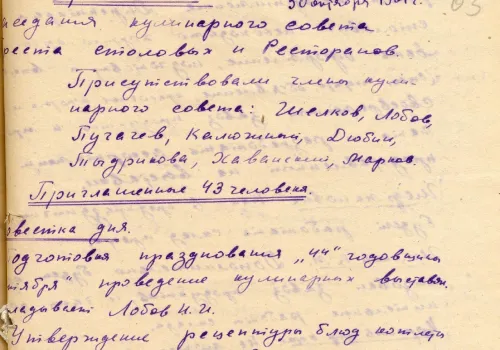 30 октября 196 г.
седания кулинарного совета
реста столовых и Ресторанов
Присутствовали члены кули-
нарного совета: Шелков, Лобов,
Пугачев, Калюжный, Дюбин,
Тыдрикова, Хаванский, Марков.
Приглашенные 43 человека.
овестка дня.
одготовка празднования „44" годовщины
тября" проведение кулинарных выставок.
кладывает Лобов Н.И.
Утверждение рецептуры блюд котлеты